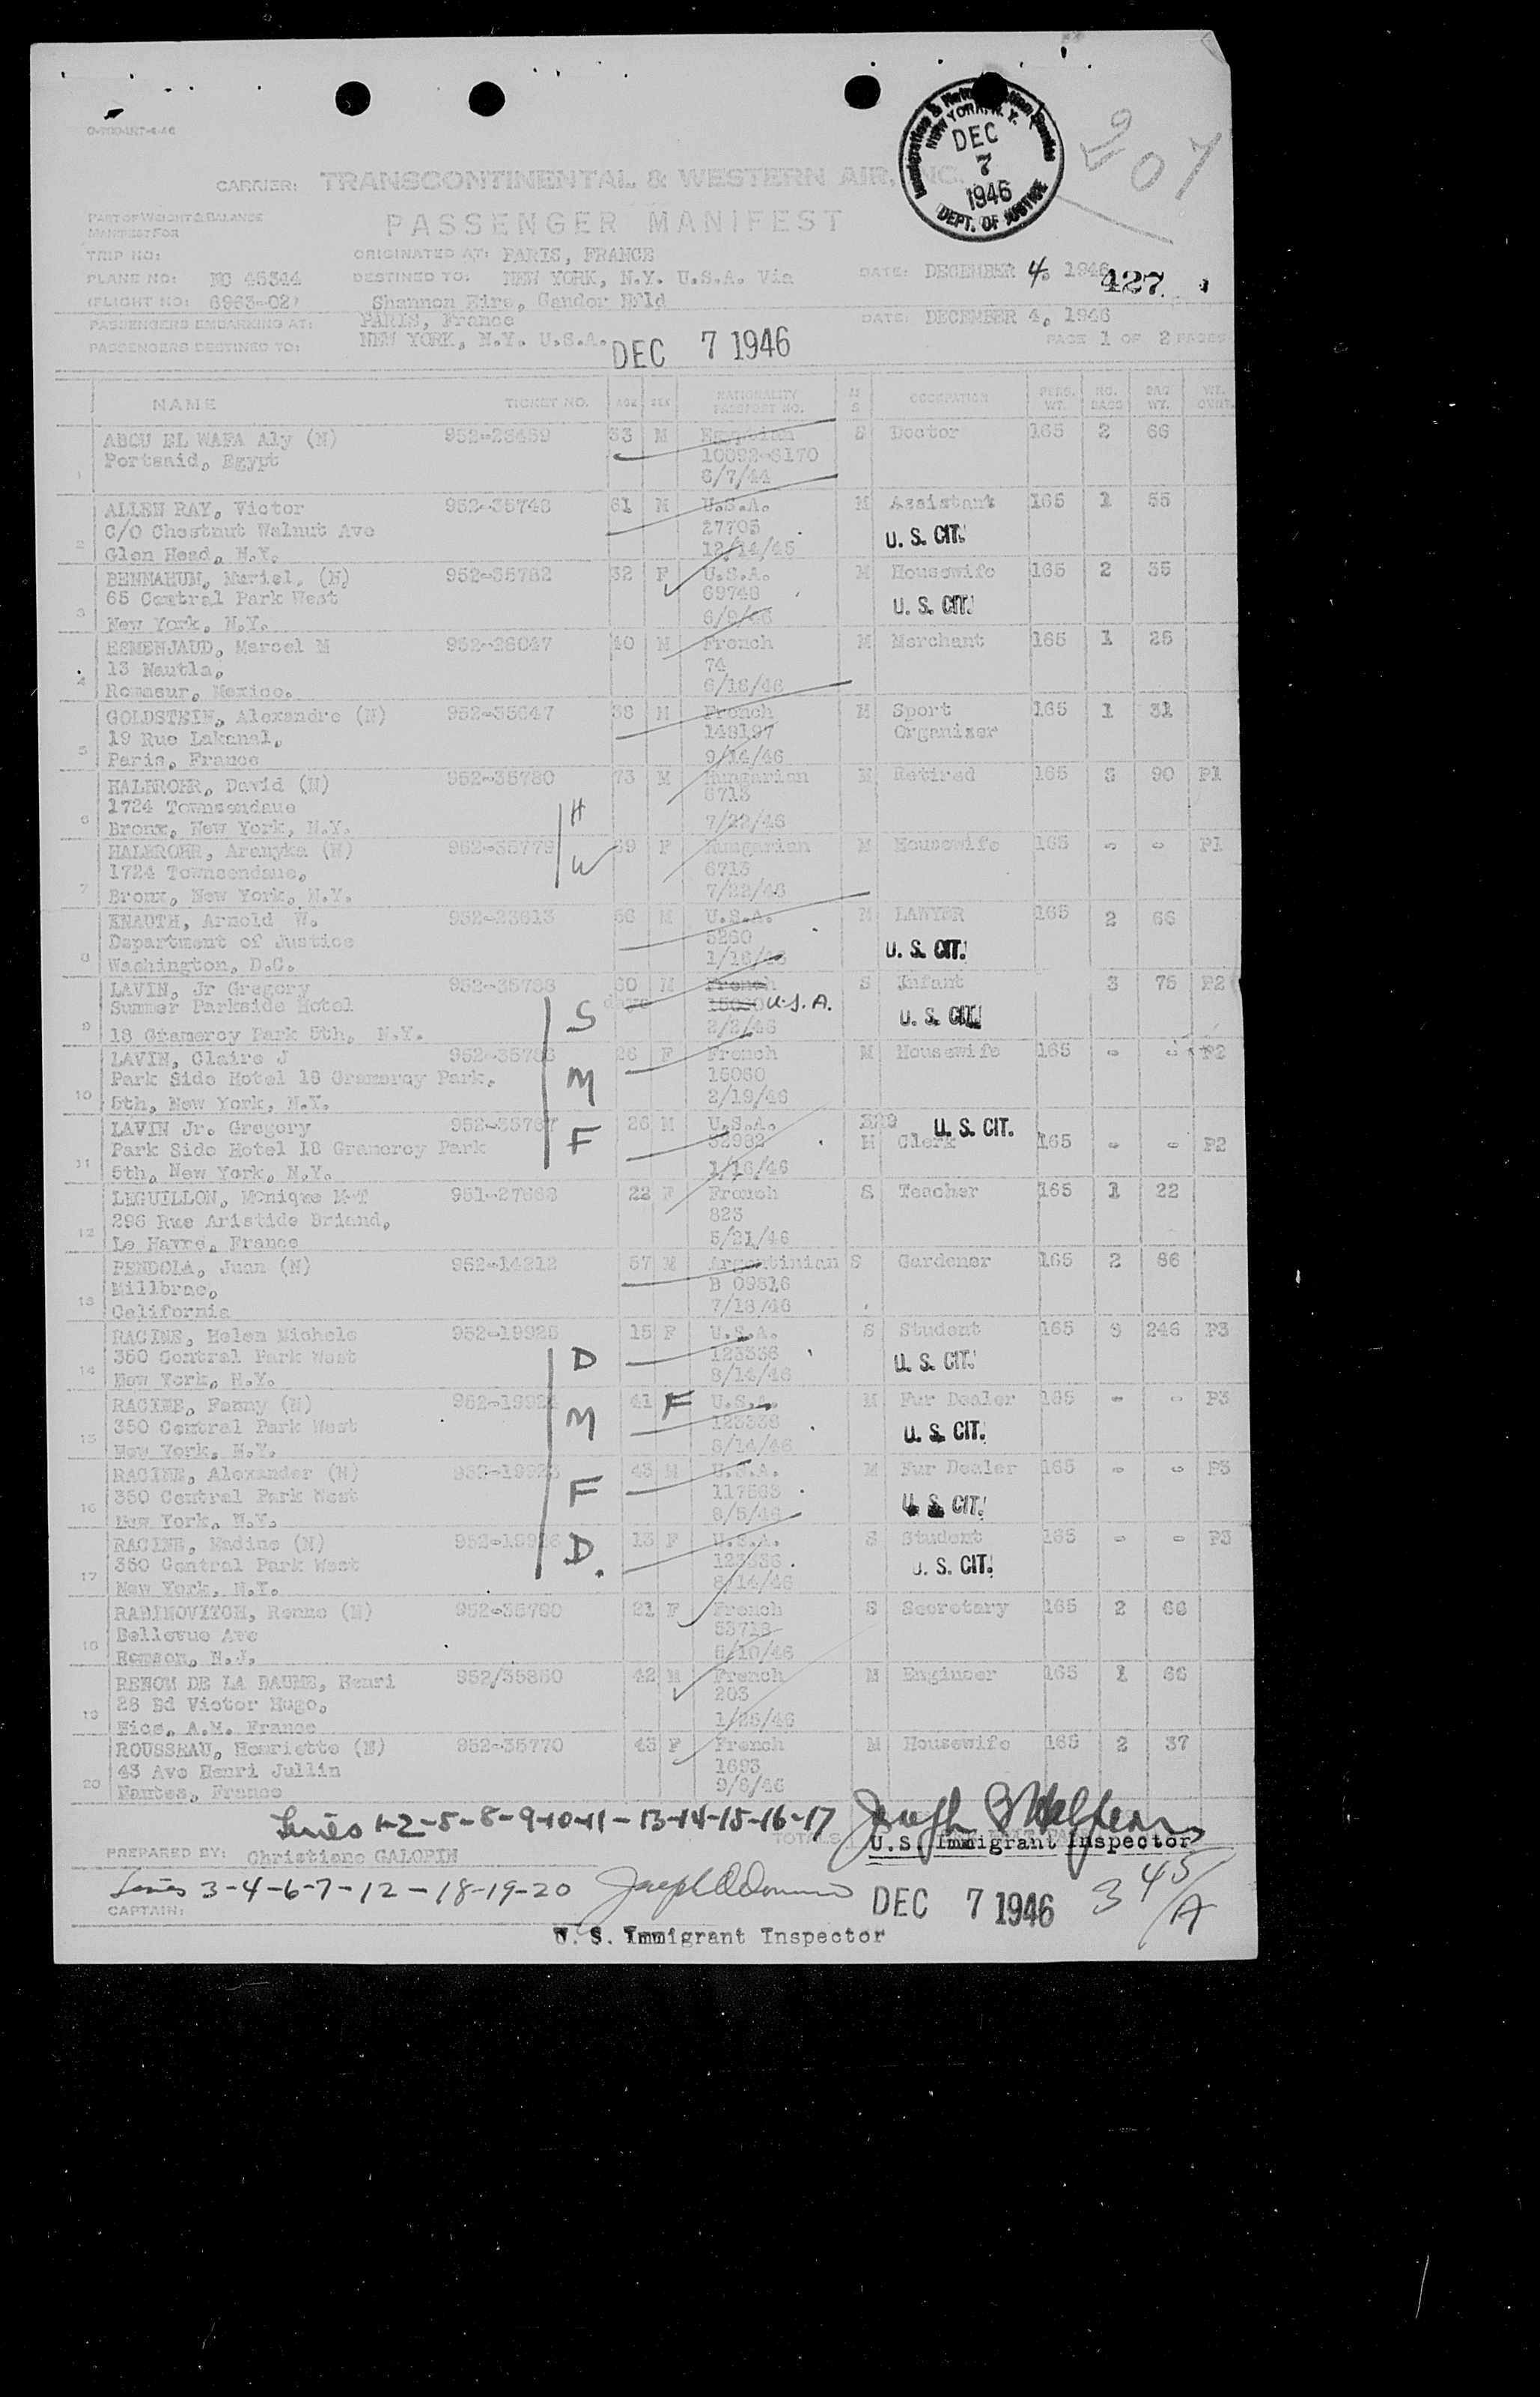 CARRIER: TRANSCONTINENTAL & WESTERN AIR, INC.
Immigration & Naturalization Service
NEW YORK, N. Y.
DEC
7
1946
DEPT. OF JUSTICE
207
PART OF WEIGHT & BALANCE
MANIFEST FOR
PASSENGER MANIFEST
TRIP NO:
ORIGINATED AT: PARIS, FRANCE
PLANE NO: NC 45344
DESTINED TO: NEW YORK, N.Y. U.S.A. Via
DATE: DECEMBER 4, 1946
427
(FLIGHT NO: 6963-02)
Shannon Eire, Gander Nfld
PASSENGERS EMBARKING AT: PARIS, France
DATE: DECEMBER 4, 1946
PASSENGERS DESTINED TO: NEW YORK, N.Y. U.S.A.
DEC 7 1946
PAGE 1 OF 2 PAGES
NAME TICKET NO. AGE SEX NATIONALITY PASSPORT NO. M S OCCUPATION PERS. WT. NO. BAGS BAG WT. WT. OVHT.
ABOU EL WAFA Aly (N) 33 M Egyptian S Doctor 165 2 66
Portsaid, Egypt
1
6/7/44
ALLEN RAY, Victor 952-35748 61 M U.S.A. M Assistant 165 1 55
C/O Chestnut Walnut Ave 27705 U. S. CIT.
2 Glen Head, N.Y. 12/14/45
BENNAHUM, Muriel, (N) 952-35782 32 F U.S.A. M Housewife 165 2 35
65 Central Park West 69748 U. S. CIT.
3 New York, N.Y.
ESMENJAUD, Marcel M 952-26047 40 M French M Merchant 165 1 25
13 Nautla, 74
4 Romasur, Mexico. 6/16/46
GOLDSTEIN, Alexandre (N) 952-35647 38 M French M Sport 165 1 31
19 Rue Lakanal, 148197 Organizer
5 Paris, France 9/14/46
HALBROHR, David (N) 952-35780 73 M Hungarian M Retired 165 90 P1
1724 Townsendaue 6713
6 Bronx, New York, N.Y. H 7/22/46
HALBROHR, Aranyka (N) F Hungarian M Housewife 165 - - P1
1724 Townsendaue, W 6713
7 Bronx, New York, N.Y. 7/22/46
KNAUTH, Arnold W. 952-23613 56 M U.S.A. M LAWYER 165 2 66
Department of Justice 5260 U. S. CIT.
8 Washington, D.C.
LAVIN, Jr Gregory 60 M French S Infant 3 75 P2
Summer Parkside Hotel S days U.S.A. U. S. CIT.
9 18 Gramercy Park 5th, N.Y. 2/2/46
LAVIN, Claire J 26 F French M Housewife 165 - - P2
Park Side Hotel 18 Gramercy Park, M 15080
10 5th, New York, N.Y. 2/19/46
LAVIN Jr. Gregory 952-35767 26 M U.S.A. U. S. CIT.
Park Side Hotel 18 Gramercy Park F M Clerk 165 - - P2
11 5th, New York, N.Y. 1/16/46
LEGUILLON, Monique M-T 22 F French S Teacher 165 1 22
296 Rue Aristide Briand, 823
12 Le Havre, France 5/21/46
PENDOLA, Juan (N) 952-14212 57 M Argentinian S Gardener 165 2 66
Millbrae, B 09816
13 California 7/18/46
RACINE, Helen Michele 952-19925 15 F U.S.A. S Student 165 246 P3
350 Central Park West D U. S. CIT.
14 New York, N.Y. 8/14/46
RACINE, Fanny (N) 41 F U.S.A. M Fur Dealer 165 - - P3
350 Central Park West M U. S. CIT.
15 New York, N.Y. 8/14/46
RACINE, Alexander (N) 43 M U.S.A. M Fur Dealer 165 - - P3
350 Central Park West F 117563 U. S. CIT.
16 New York, N.Y. 8/5/46
RACINE, Nadine (N) 952-19926 13 F U.S.A. S Student 165 - - P3
350 Central Park West D. U. S. CIT.
17 New York, N.Y. 8/14/46
RABINOVITCH, Renne (N) 952-35760 21 F French S Secretary 165 2 66
Bellevue Ave 53718
18 Rumson, N.J.
RENOM DE LA BAUME, Henri 952/35850 42 M French M Engineer 165 1 66
28 Bd Victor Hugo, 203
19 Nice, A.M. France 1/25/46
ROUSSEAU, Henriette (N) 952-35770 43 F French M Housewife 165 2 37
43 Ave Henri Jullin 1693
20 Nantes, France 9/6/46
Lines 1-2-5-8-9-10-11-13-14-15-16-17
TOTALS
U.S. Immigrant Inspector
PREPARED BY: Christiane GALOPIN
Lines 3-4-6-7-12-18-19-20
CAPTAIN:
DEC 7 1946
345/A
U. S. Immigrant Inspector